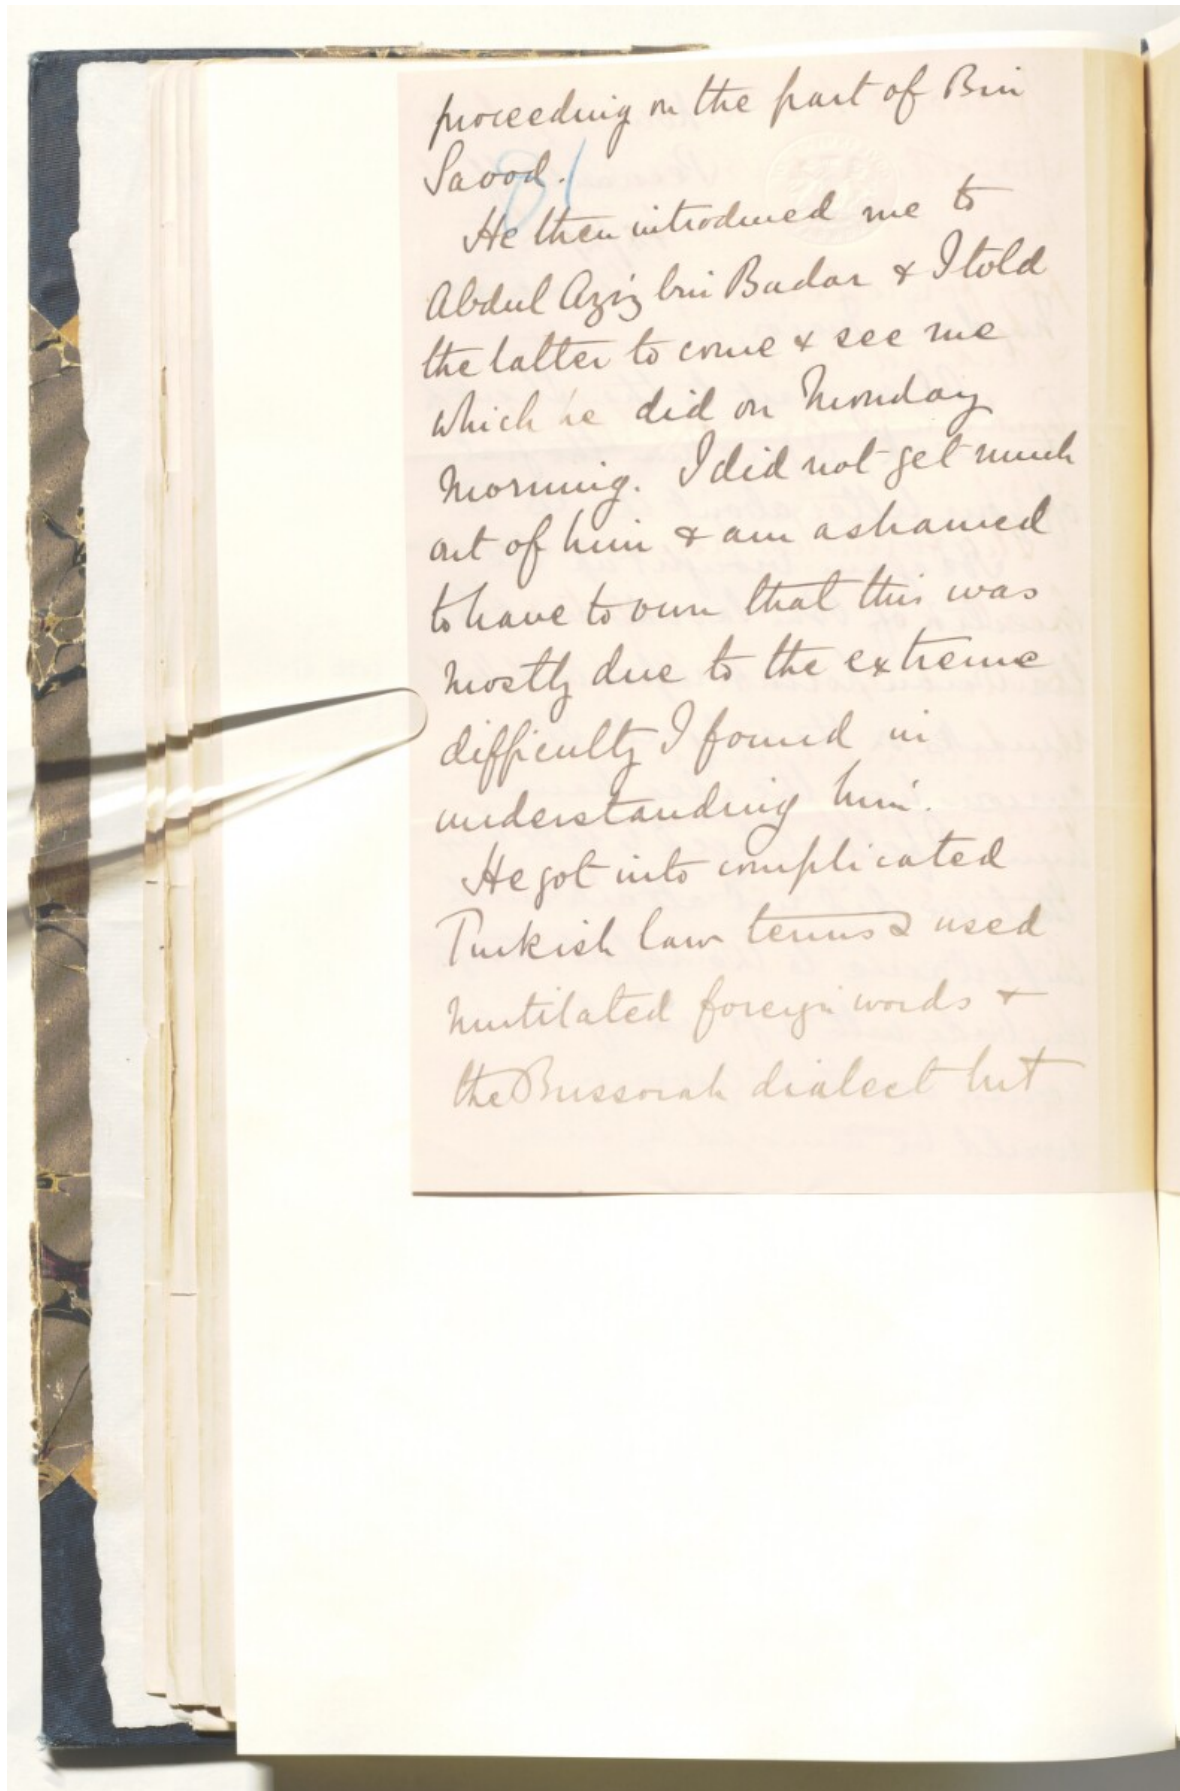 proceeding on the part of Bin
Saood.
81
He then introduced me to
Abdul Aziz bin Badar & I told
the latter to come & see me
which he did on Monday
morning. I did not get much
out of him & am ashamed
to have to own that this was
mostly due to the extreme
difficulty I found in
understanding him.
He got into complicated
Turkish law terms & used
mutilated foreign words &
the Bussorah dialect but